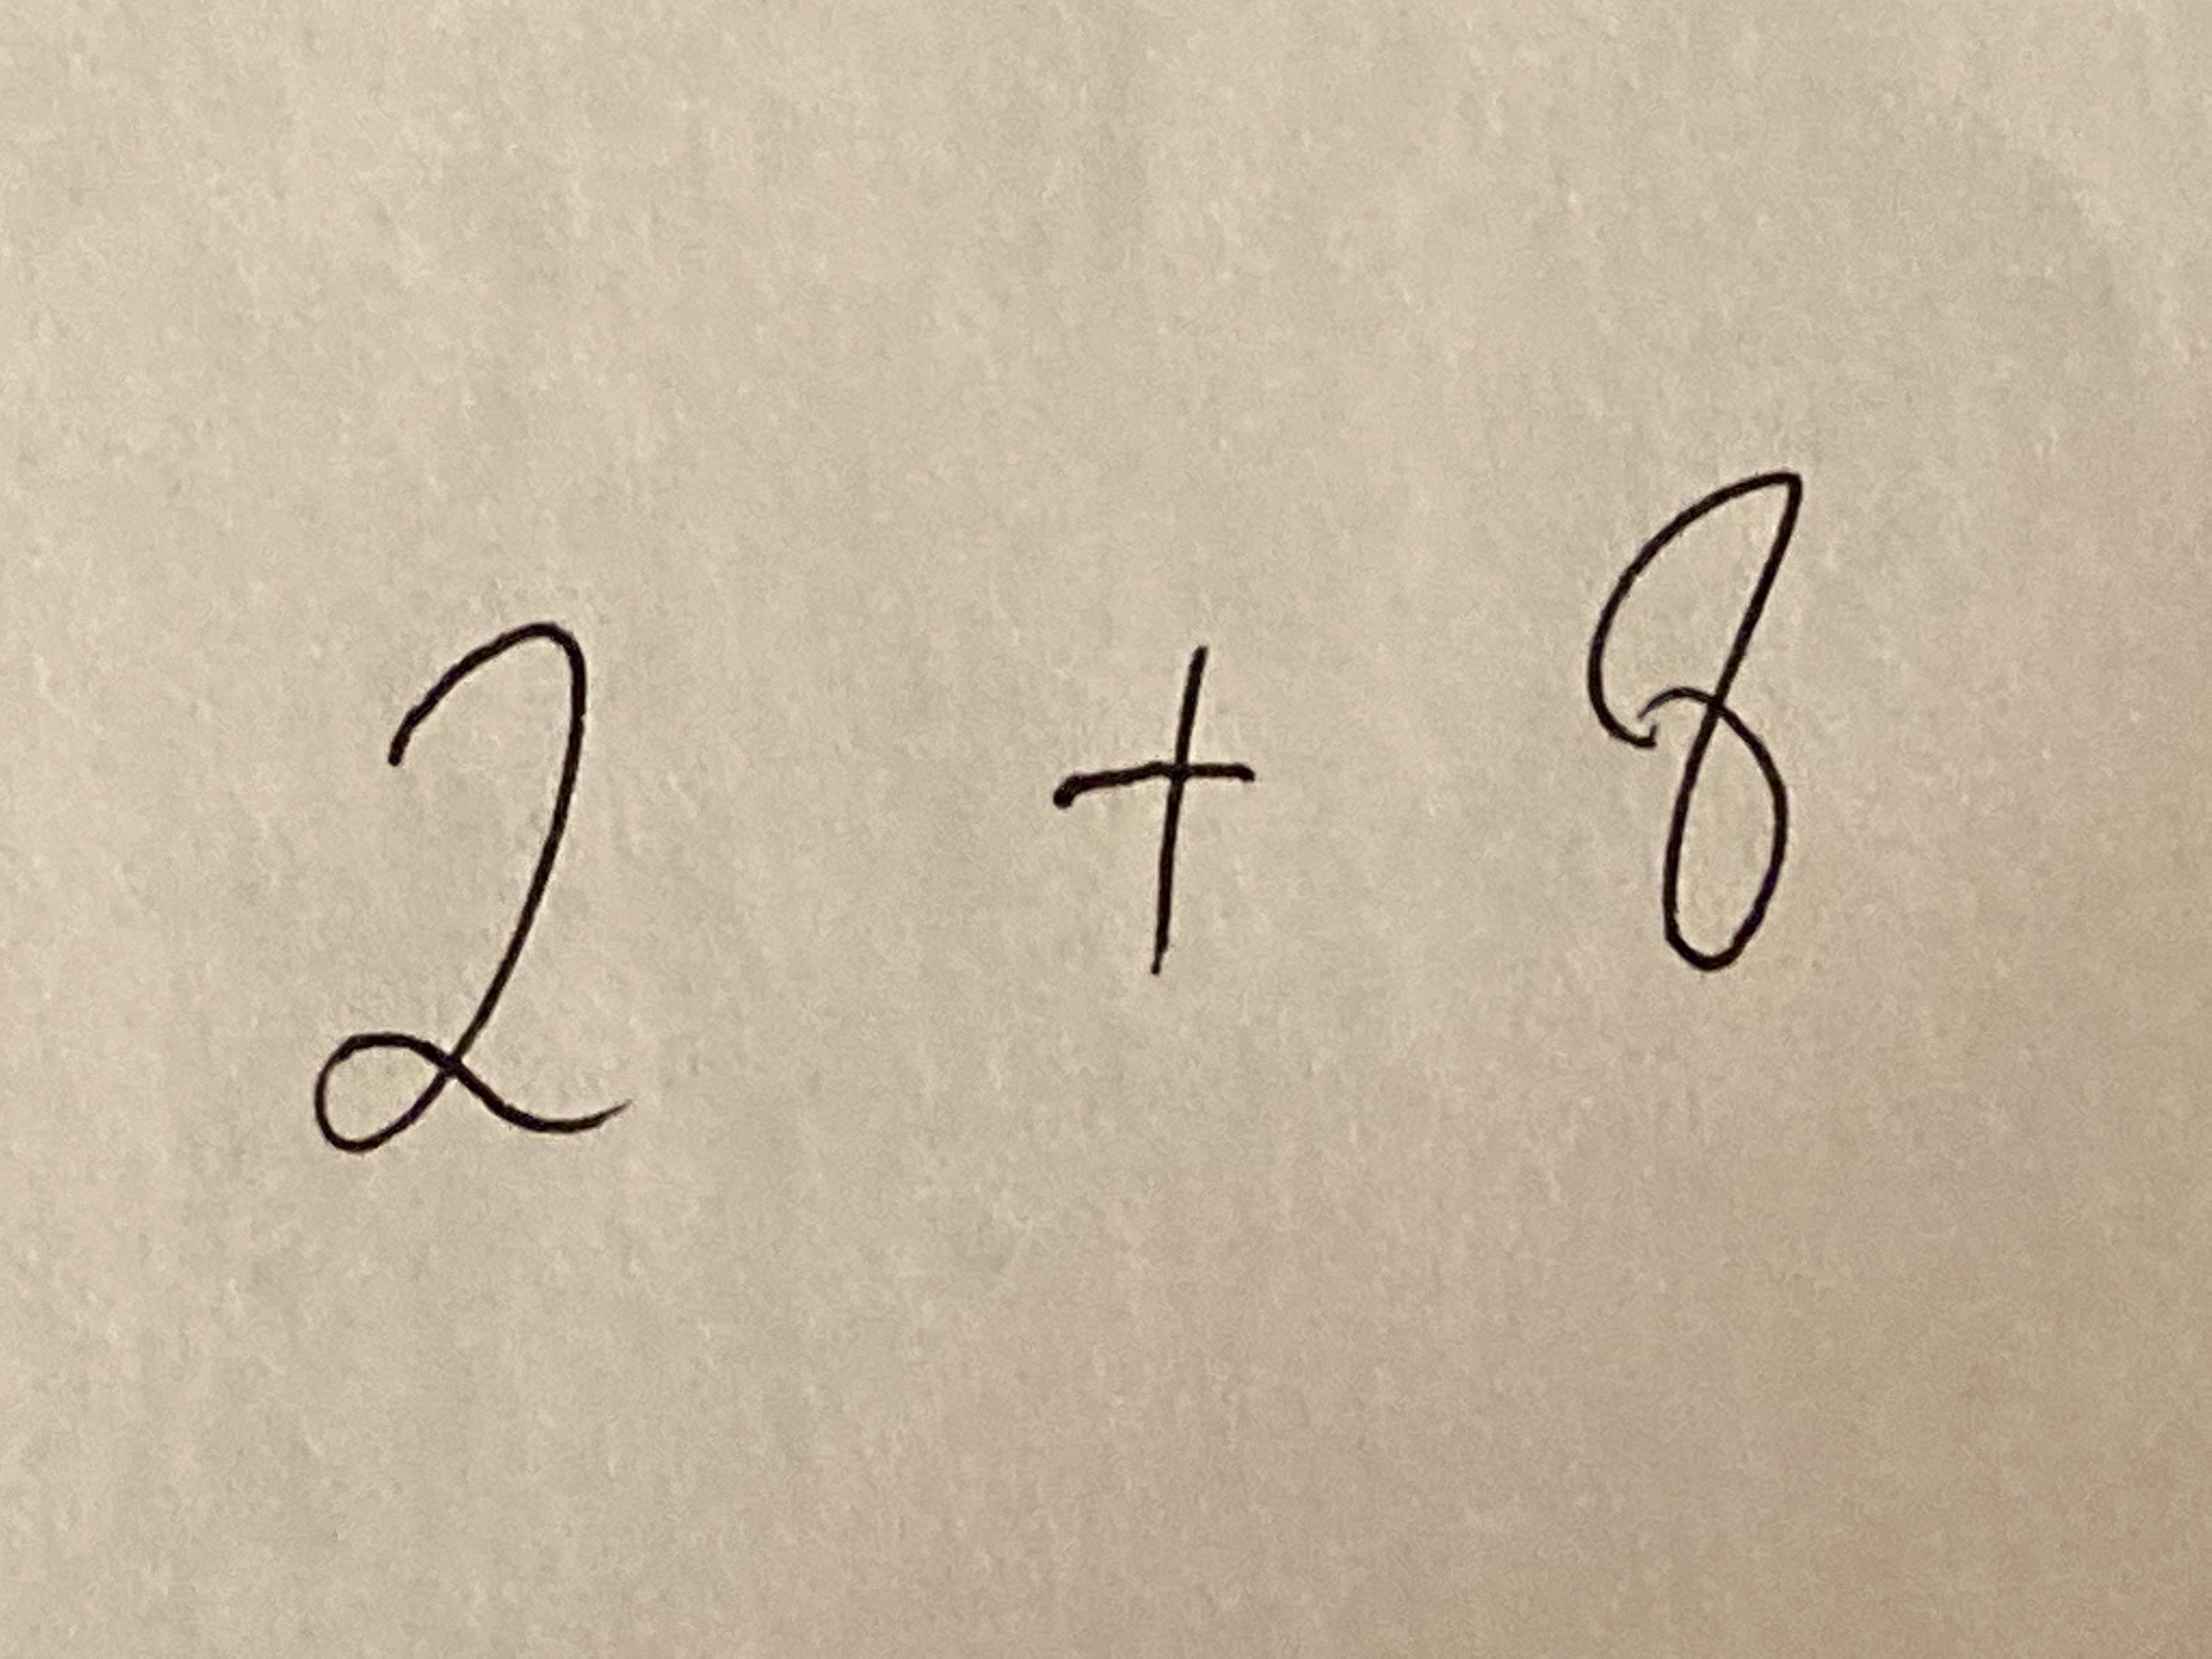 2 + 8